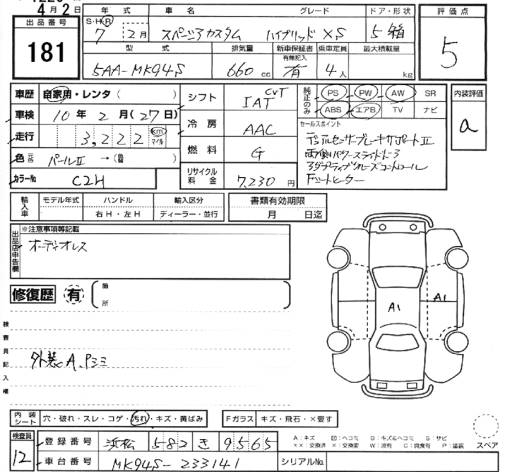 4月2日
出品番号
181
年式 車名 グレード ドア・形状
S・H・R 7年2月 スペーシアカスタム ハイブリッド XS 5 箱
型式 排気量 新車保証書 乗車定員 最大積載量
有無記入
5AA-MK94S 660cc 有 4人 kg
評価点
5
車歴 自家用・レンタ( )
車検 10年2月(27日)
走行 3,222 km マイル
色 パールII →(
カラーNo C2H
シフト CVT IAT
冷房 AAC
燃料 G
リサイクル料金 7,230円
純正のみ PS PW AW SR
ABS エアB TV ナビ
セールスポイント
デュアルセンサーブレーキサポートII
両側パワースライドドア
アダプティブクルーズコントロール
F.シートヒーター
内装評価
a
輸入車 モデル年式 ハンドル 輸入区分
右H・左H ディーラー・並行
書類有効期限
月 日迄
出品店申告欄
※注意事項等記載
オーディオレス
修復歴 有
箇所
検査員記入欄
外装A、Pシミ
A1 A1
内装シート 穴・破れ・スレ・コゲ・汚れ・キズ・黄ばみ
Fガラス キズ・飛石・×要す
検査員
12
登録番号 浜松 582 き 9565
車台番号 MK94S-233141
シリアルNo.
スペア